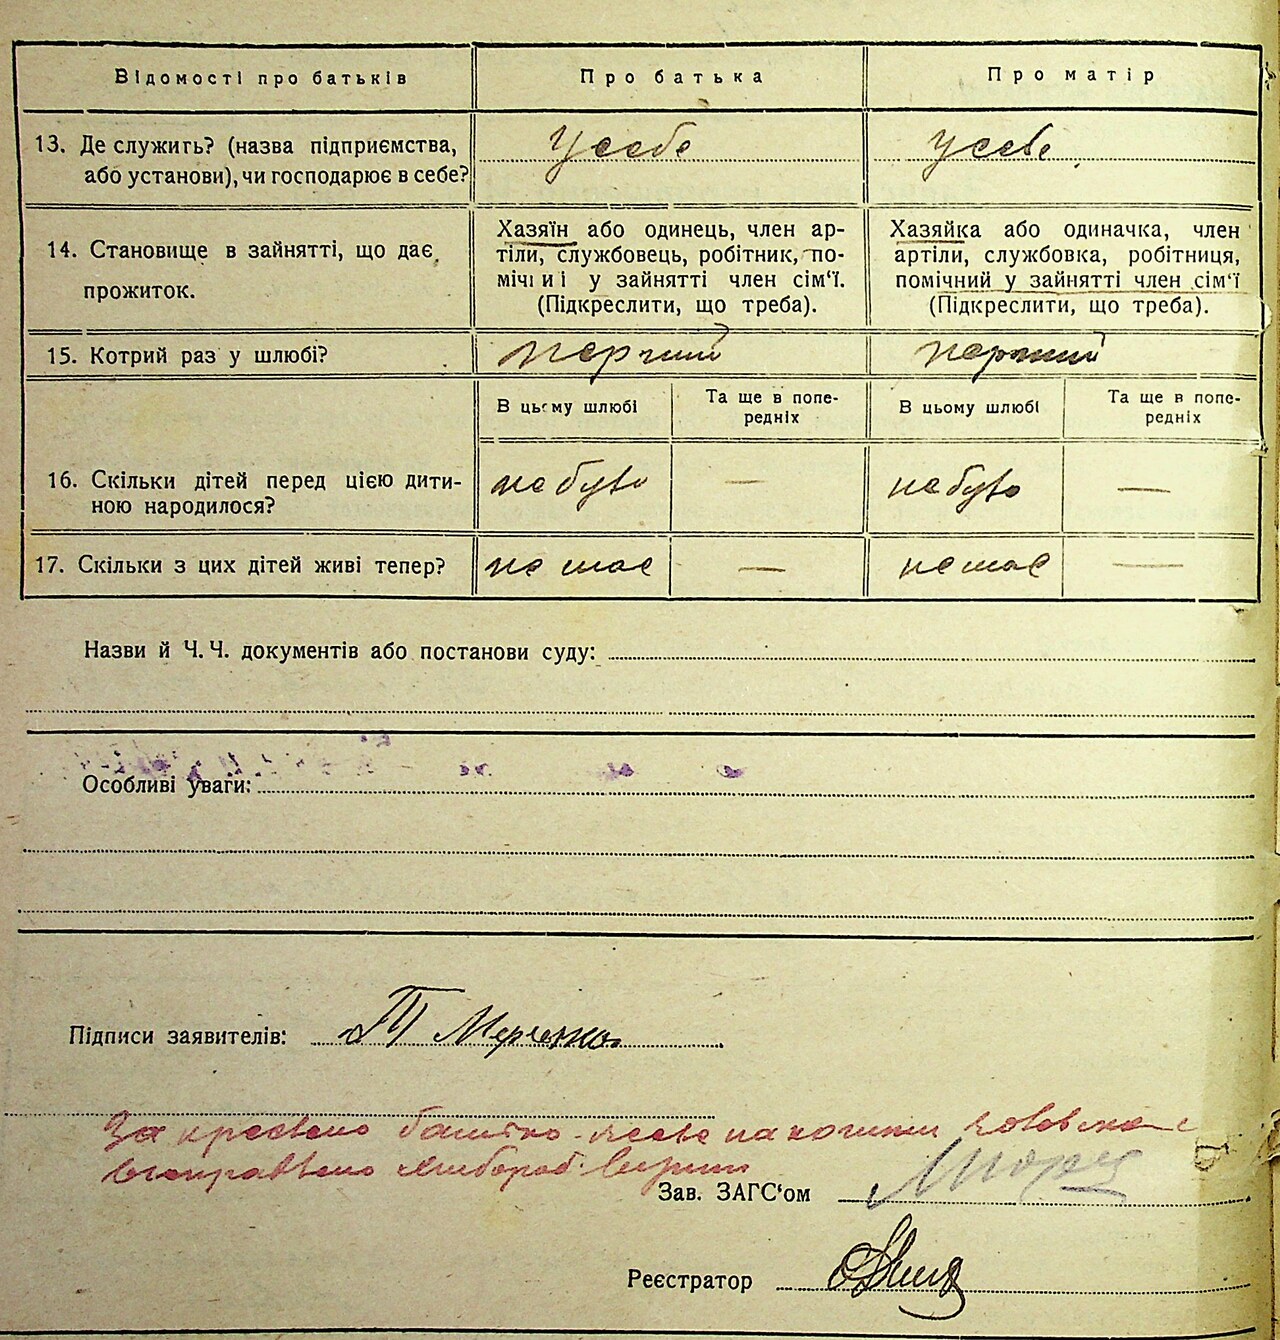 Відомості про батьків
Про батька
Про матір
13. Де служить? (назва підприємства,
або установи), чи господарює в себе?
У себе
У себе
14. Становище в зайнятті, що дає
прожиток.
Хазяїн або одинець, член ар-
тіли, службовець, робітник, по-
мічниі у зайнятті член сім‘ї.
(Підкреслити, що треба).
Хазяйка або одиначка, член
артіли, службовка, робітниця,
помічний у зайнятті член сім‘ї
(Підкреслити, що треба).
15. Котрий раз у шлюбі?
перший
перший
В цьому шлюбі
Та ще в попе-
редніх
В цьому шлюбі
Та ще в попе-
редніх
16. Скільки дітей перед цією дити-
ною народилося?
не було
—
не було
—
17. Скільки з цих дітей живі тепер?
не має
—
не має
—
Назви й Ч. Ч. документів або постанови суду:
Особливі уваги:
Підписи заявителів:
За
Зав. ЗАГС‘ом
Реєстратор